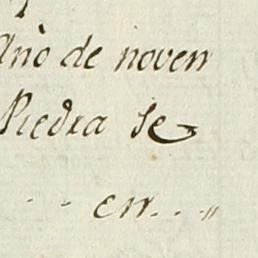 Año de noven
Piedra se
en